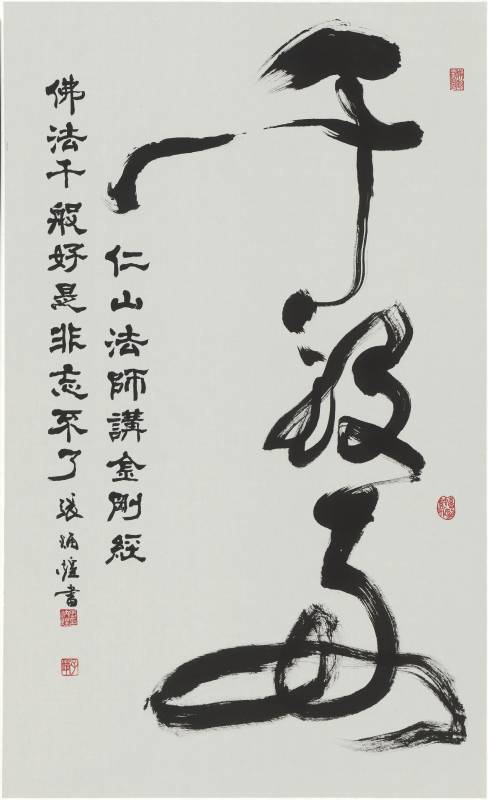 千般好
仁山法師講金剛經
佛法千般好是非忘不了 張炳煌書